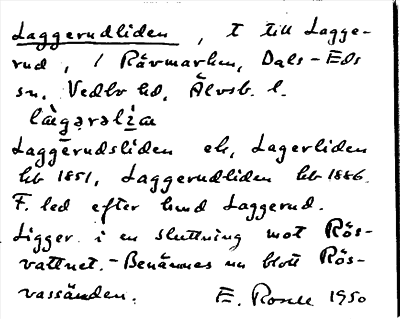 Laggerudliden, t till Lagge-
rud, i Rävmarken, Dals-Eds
sn. Vedbo hd, Älvsb. l.
làgərəlìa
Laggerudsliden ek, Lagerliden
hb 1851, Laggerudliden hb 1886.
F. led efter hmd Laggerud.
Ligger i en sluttning mot Rös-
vattnet. - Benämnes nu blott Rös-
vassänden. E. Rosell 1950